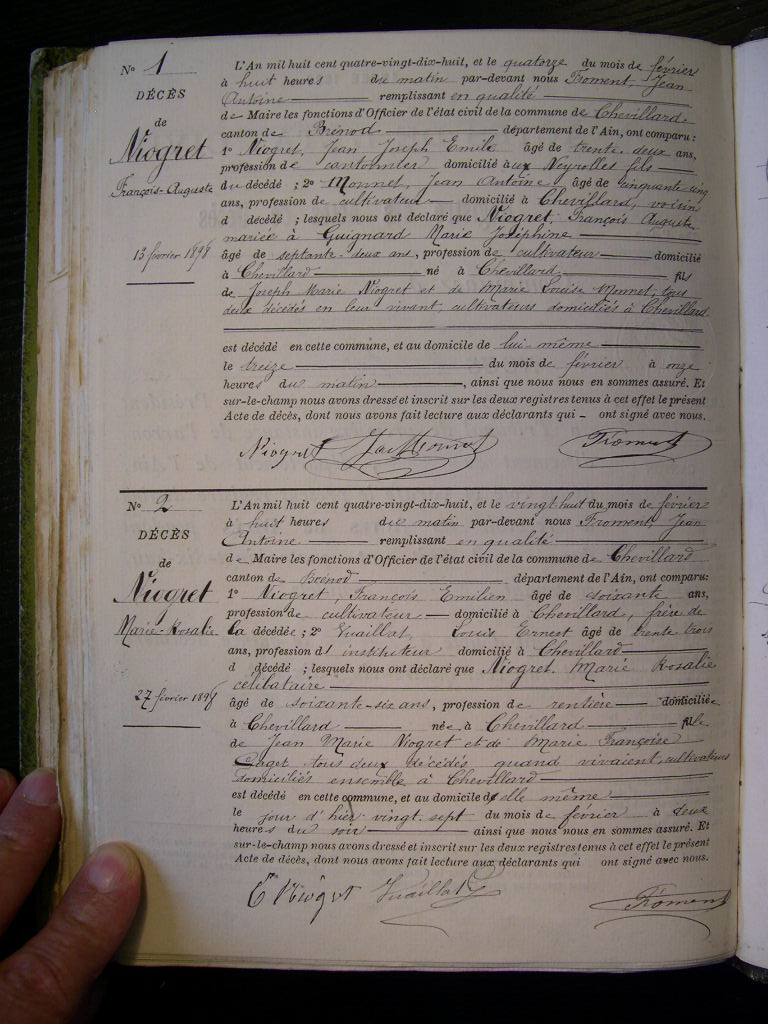 No 1
DÉCÈS
de
Niogret
François-Auguste
13 février 1898
L'An mil huit cent quatre-vingt-dix-huit, et le quatorze du mois de février
à huit heures du matin par-devant nous Froment, Jean
Antoine remplissant en qualité
de Maire les fonctions d'Officier de l'état civil de la commune de Chevillard
canton de Brénod département de l'Ain, ont comparu:
1o Niogret, Jean Joseph Emile âgé de trente-deux ans,
profession de cantonnier domicilié aux Neyrolles fils
du décédé; 2o Monnet, Jean Antoine âgé de cinquante cinq
ans, profession de cultivateur domicilié à Chevillard, voisin
d décédé; lesquels nous ont déclaré que Niogret, François Auguste
mariée à Guignard Marie Joséphine
âgé de septante-deux ans, profession de cultivateur domicilié
à Chevillard né à Chevillard fils
de Joseph Marie Niogret et de Marie Louise Monnet, tous
deux décédés en leur vivant, cultivateurs domiciliés à Chevillard
est décédé en cette commune, et au domicile de lui-même
le treize du mois de février à onze
heures du matin, ainsi que nous nous en sommes assuré. Et
sur-le-champ nous avons dressé et inscrit sur les deux registres tenus à cet effet le présent
Acte de décès, dont nous avons fait lecture aux déclarants qui - ont signé avec nous.
Niogret Monnet Froment
No 2
DÉCÈS
de
Niogret
Marie-Rosalie
27 février 1898
L'An mil huit cent quatre-vingt-dix-huit, et le vingt huit du mois de février
à huit heures du matin par-devant nous Froment, Jean
Antoine remplissant en qualité
de Maire les fonctions d'Officier de l'état civil de la commune de Chevillard
canton de Brénod département de l'Ain, ont comparu:
1o Niogret, François Emilien âgé de soixante ans,
profession de cultivateur domicilié à Chevillard, frère de
la décédée; 2o Vuaillat, Louis Ernest âgé de trente trois
ans, profession d'instituteur domicilié à Chevillard
d décédé; lesquels nous ont déclaré que Niogret, Marie Rosalie
célibataire
âgé de soixante-six ans, profession de rentière domiciliée
à Chevillard née à Chevillard fille
de Jean Marie Niogret et de Marie Françoise
tous deux décédés quand vivaient, cultivateurs
domiciliés ensemble à Chevillard
est décédé en cette commune, et au domicile d'elle même
le jour d'hier vingt sept du mois de février à deux
heures du soir ainsi que nous nous en sommes assuré. Et
sur-le-champ nous avons dressé et inscrit sur les deux registres tenus à cet effet le présent
Acte de décès, dont nous avons fait lecture aux déclarants qui ont signé avec nous.
E Niogret Vuaillat Froment